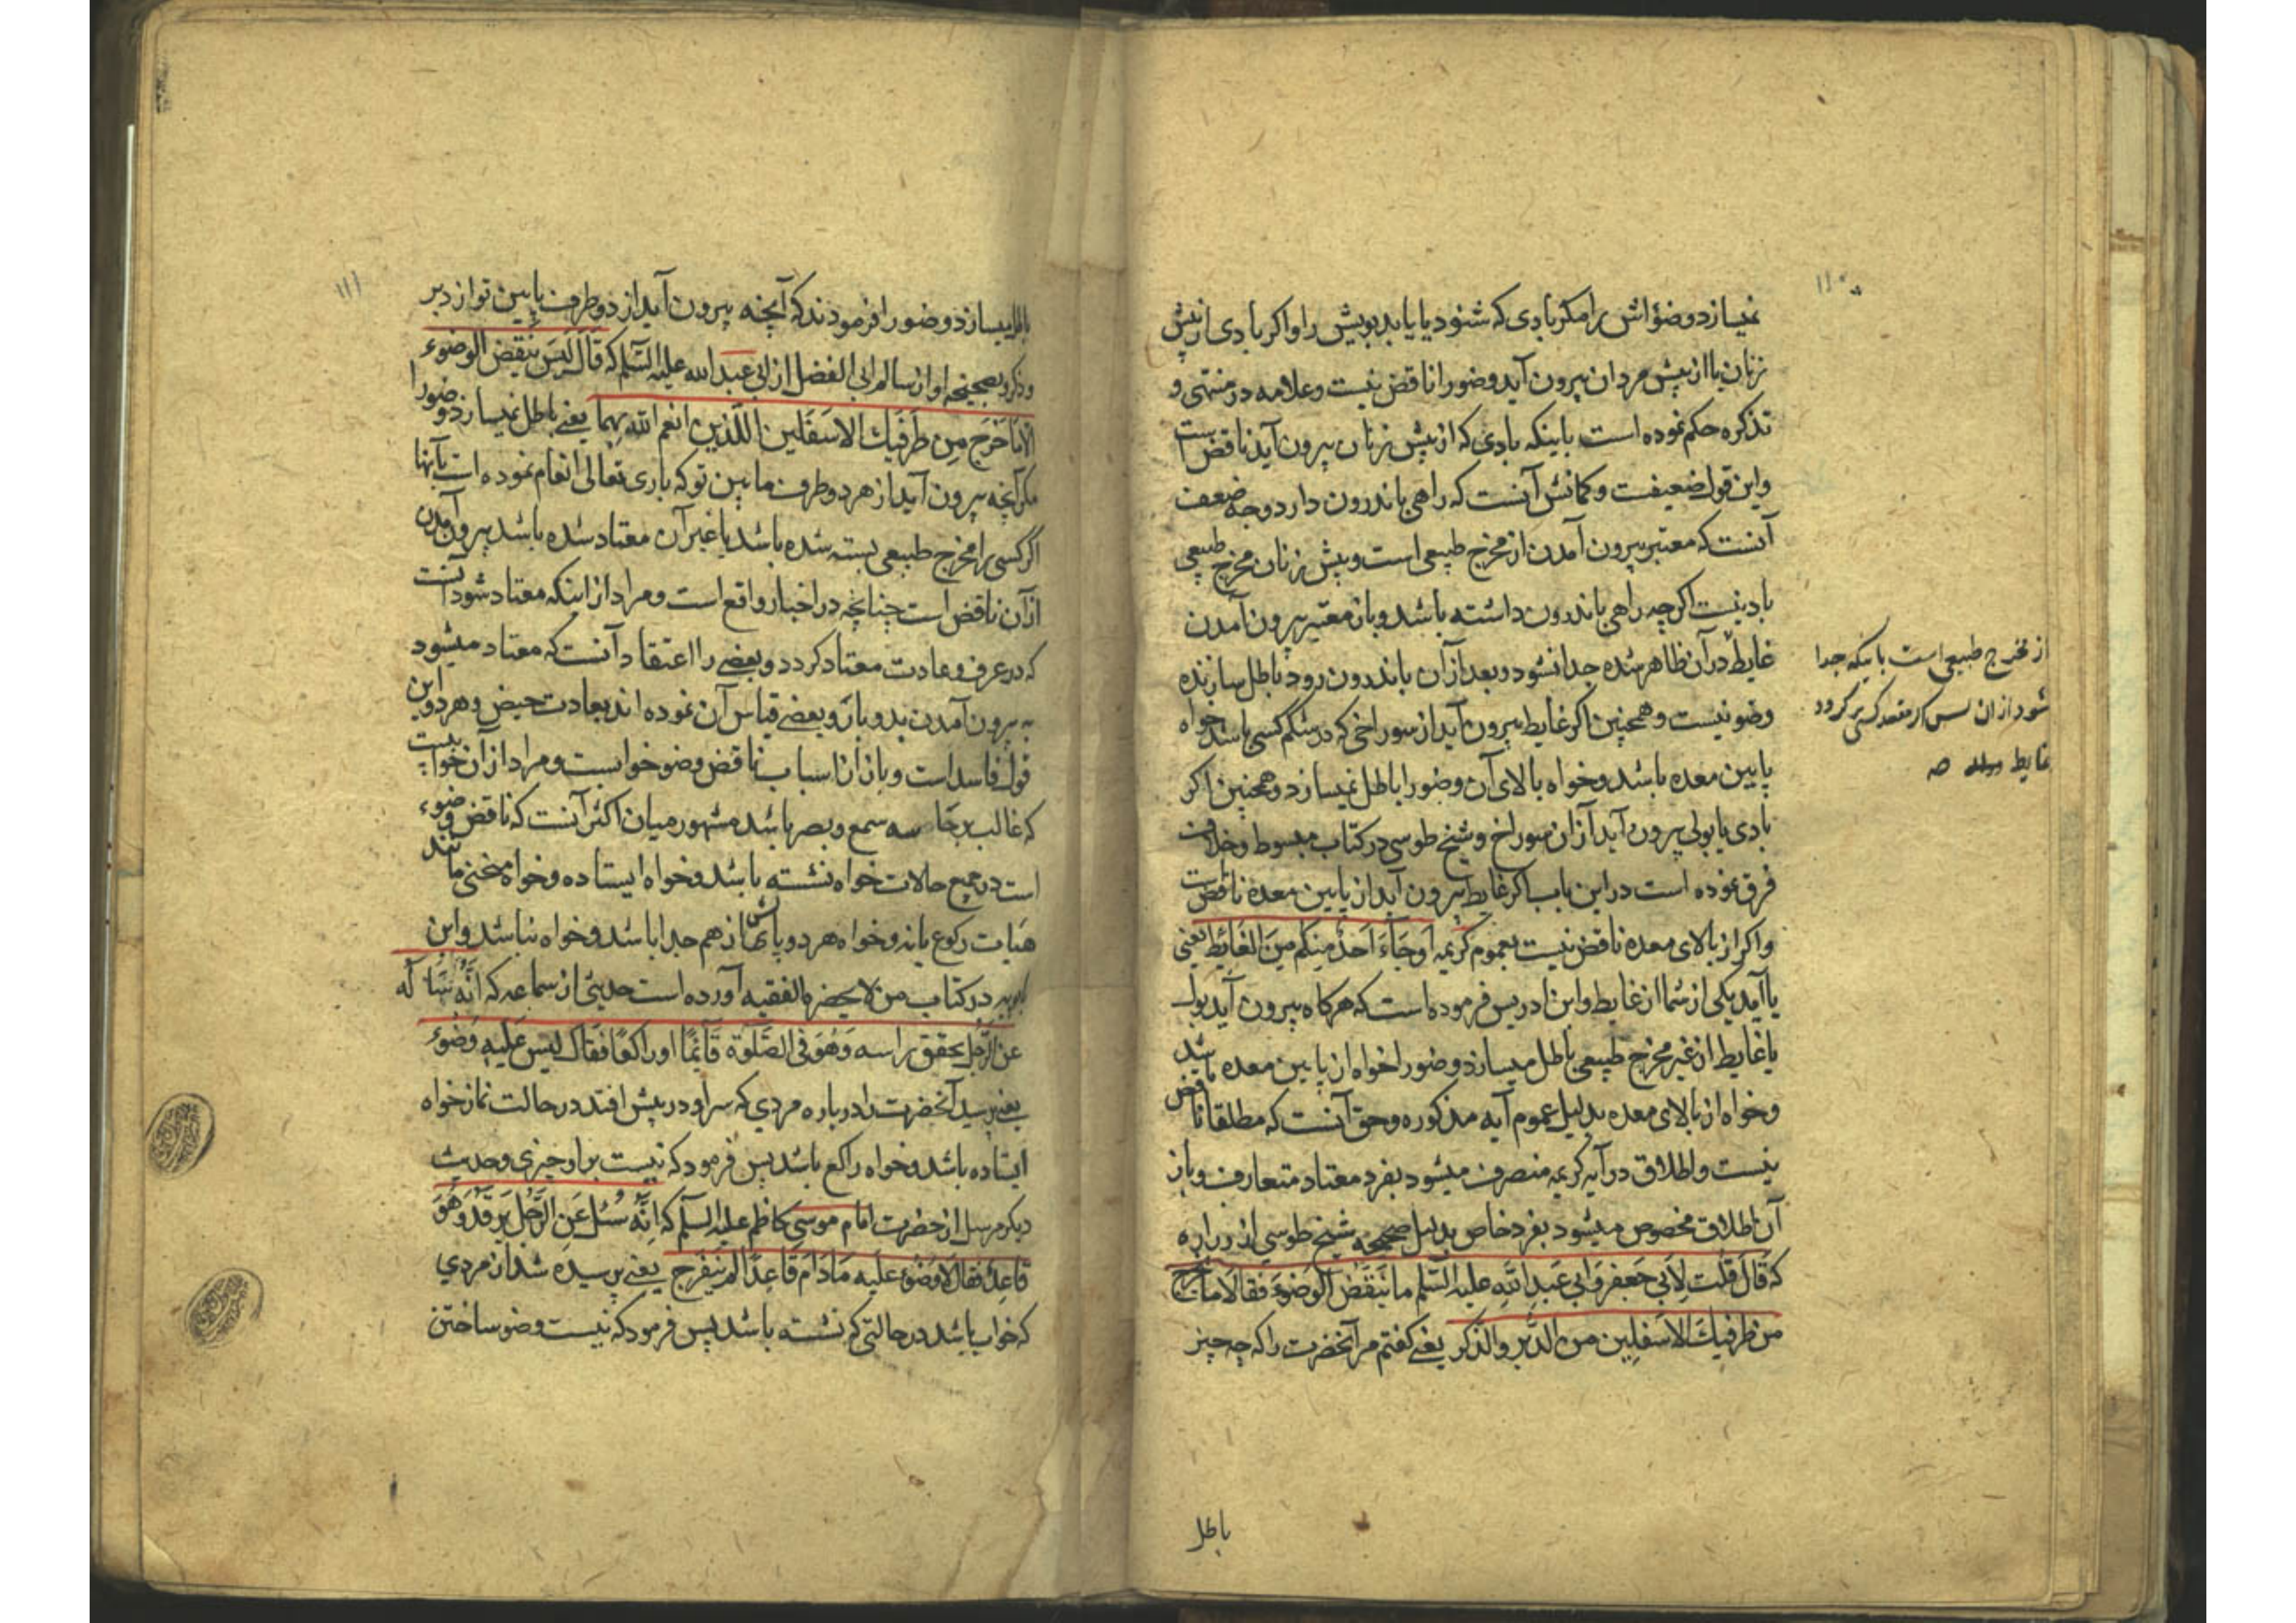 ۱۱۰
نمیسازد وضؤاش را مکر بادی که شنود یا یابد بویش را واکر بادی از پیش
زنان یا از پیش مردان بیرون آید وضو را ناقض نیست وعلامه در منتهی و
تذکره حکم نموده است باینکه بادی که از پیش زنان بیرون آید ناقض است
واین قول ضعیفست وکمانش آنست که راهی باندرون دارد وجه ضعف
آنست که معتبر بیرون آمدن از مخرج طبیعی است وپیش زنان مخرج طبیعی
باد نیست اکرچه راهی باندرون داشته باشد وباز معتبر بیرون آمدن
غایط در آن ظاهر شده جدا نشود وبعد از آن باندرون رود باطل سازنده
وضو نیست وهمچنین اکر غایط بیرون آید از سوراخی که در شکم کسی باشد خواه
پایین معده باشد وخواه بالای آن وضو را باطل نمیسازد وهمچنین اکر
بادی یا بولی بیرون آید از آن سوراخ وشیخ طوسی در کتاب مبسوط وخلاف
فرق نموده است در این باب اکر غایط بیرون آید از پایین معده ناقض است
واکر از بالای معده ناقض نیست بعموم کریمه اَوجَاءَ اَحَدٌ مِنکُم مِنَ الغَائِط یعنی
یا آمد یکی از شما از غایط وابن ادریس فرموده است که هرکاه بیرون آید بول
یا غایط از غیر مخرج طبیعی باطل میسازد وضو را خواه از پایین معده باشد
وخواه از بالای معده بدلیل عموم آیه مذکوره وحق آنست که مطلقا ناقض
نیست واطلاق در آیه کریمه منصرف میشود بفرد معتاد متعارف وباز
آن اطلاق مخصوص میشود بفرد خاص بدلیل صحیحه شیخ طوسی از زراره
که قَالَ قُلت لِاَبی جَعفر وَابی عَبدِ اللّهِ علیه السّلم ما یَنقُض الوُضوءَ فقالا ما یخرج
من طَرفَیكَ الاَسفلِین من الدُّبر والذّکر یعنی کفتم مر آنحضرت را که چه چیز
باطل
از مخرج طبیعی است باینکه جدا
شود از ان پس اکر مقعد کسی بر کردد
غایط
۱۱۱
باطل میسازد وضو را فرمودند که آنچه بیرون آید از دو طرف پایین تو از دبر
وذکر وصحیحه او از سالم ابی الفضل از ابی عبد الله علیه السّلم که قَالَ لَیسَ یَنقُض الوضوء
الّا مَا خَرَج مِن طَرفَیك الاَسفَلین اللّذَین انعم الله بِهما یعنی باطل نمیسازد وضو را
مکر آنچه بیرون آید از هر دو طرف مابین تو که باری تعالی انعام نموده است بآنها
اکر کسی را مخرج طبیعی بسته شده باشد یا غیر آن معتاد شده باشد بیرون آمدن
از آن ناقض است چنانچه در اخبار واقع است ومراد از اینکه معتاد شود آنست
که در عرف وعادت معتاد کردد وبعضی را اعتقاد آنست که معتاد میشود
به بیرون آمدن بدو بار وبعضی قیاس آن نموده اند بعادت حیض وهر دو این
قول فاسد است وباز از اسباب ناقض وضو خوابست ومراد از آن خوابیست
که غالب بر حاسه سمع وبصر باشد مشهور میان اکثر آنست که ناقض وضوء
است در جمیع حالات خواه نشسته باشد وخواه ایستاده وخواه منحنی مانند
هیات رکوع یا نه وخواه هر دو پاش از هم جدا باشد وخواه نباشد وابن
بابویه در کتاب من لا یحضره الفقیه آورده است حدیثی از سماعه که اَنَّه سَاَلَه
عن الرَّجل یخفق براسه وَهُوَ فی الصَّلوة قَائمًا او راکعًا فقال لیس عَلیه وَضُوء
یعنی پرسید آنحضرت را درباره مردی که سر او در پیش افتد در حالت نماز خواه
ایستاده باشد وخواه راکع باشد پس فرمود که نیست بر او چیزی وحدیث
دیکر مرسل از حضرت امام موسی کاظم علیه السّلم که اِنَّه سُئل عَنِ الرَّجُل یَرقُدُ وهُوَ
قاعِدٌ فقال لا وُضُوءَ علَیه مَادَامَ قَاعِدًا اَن لم یَنفَرِج یعنی پرسیده شد از مردی
که خواب باشد در حالتی که نشسته باشد پس فرمود که نیست وضو ساختن